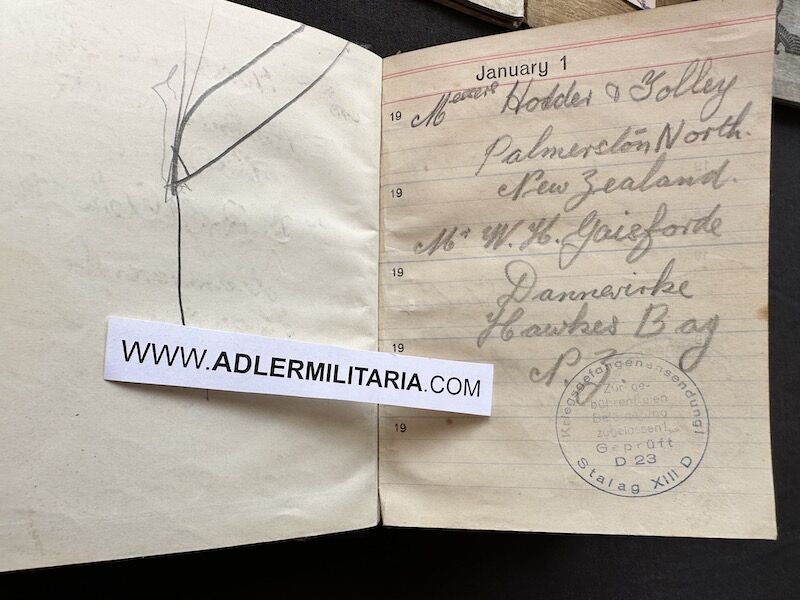 January 1
19
Messrs Hodder & Tolley
Palmerston North.
19
New Zealand.
Mr W. H. Gaisforde
19
Dannevirke
Hawkes Bay
19
N.Z.
19
WWW.ADLERMILITARIA.COM
Kriegsgefangenensendung!
Zur ge-
bührenfreien
Beförderung
zugelassen!
Geprüft
D 23
Stalag XIII D